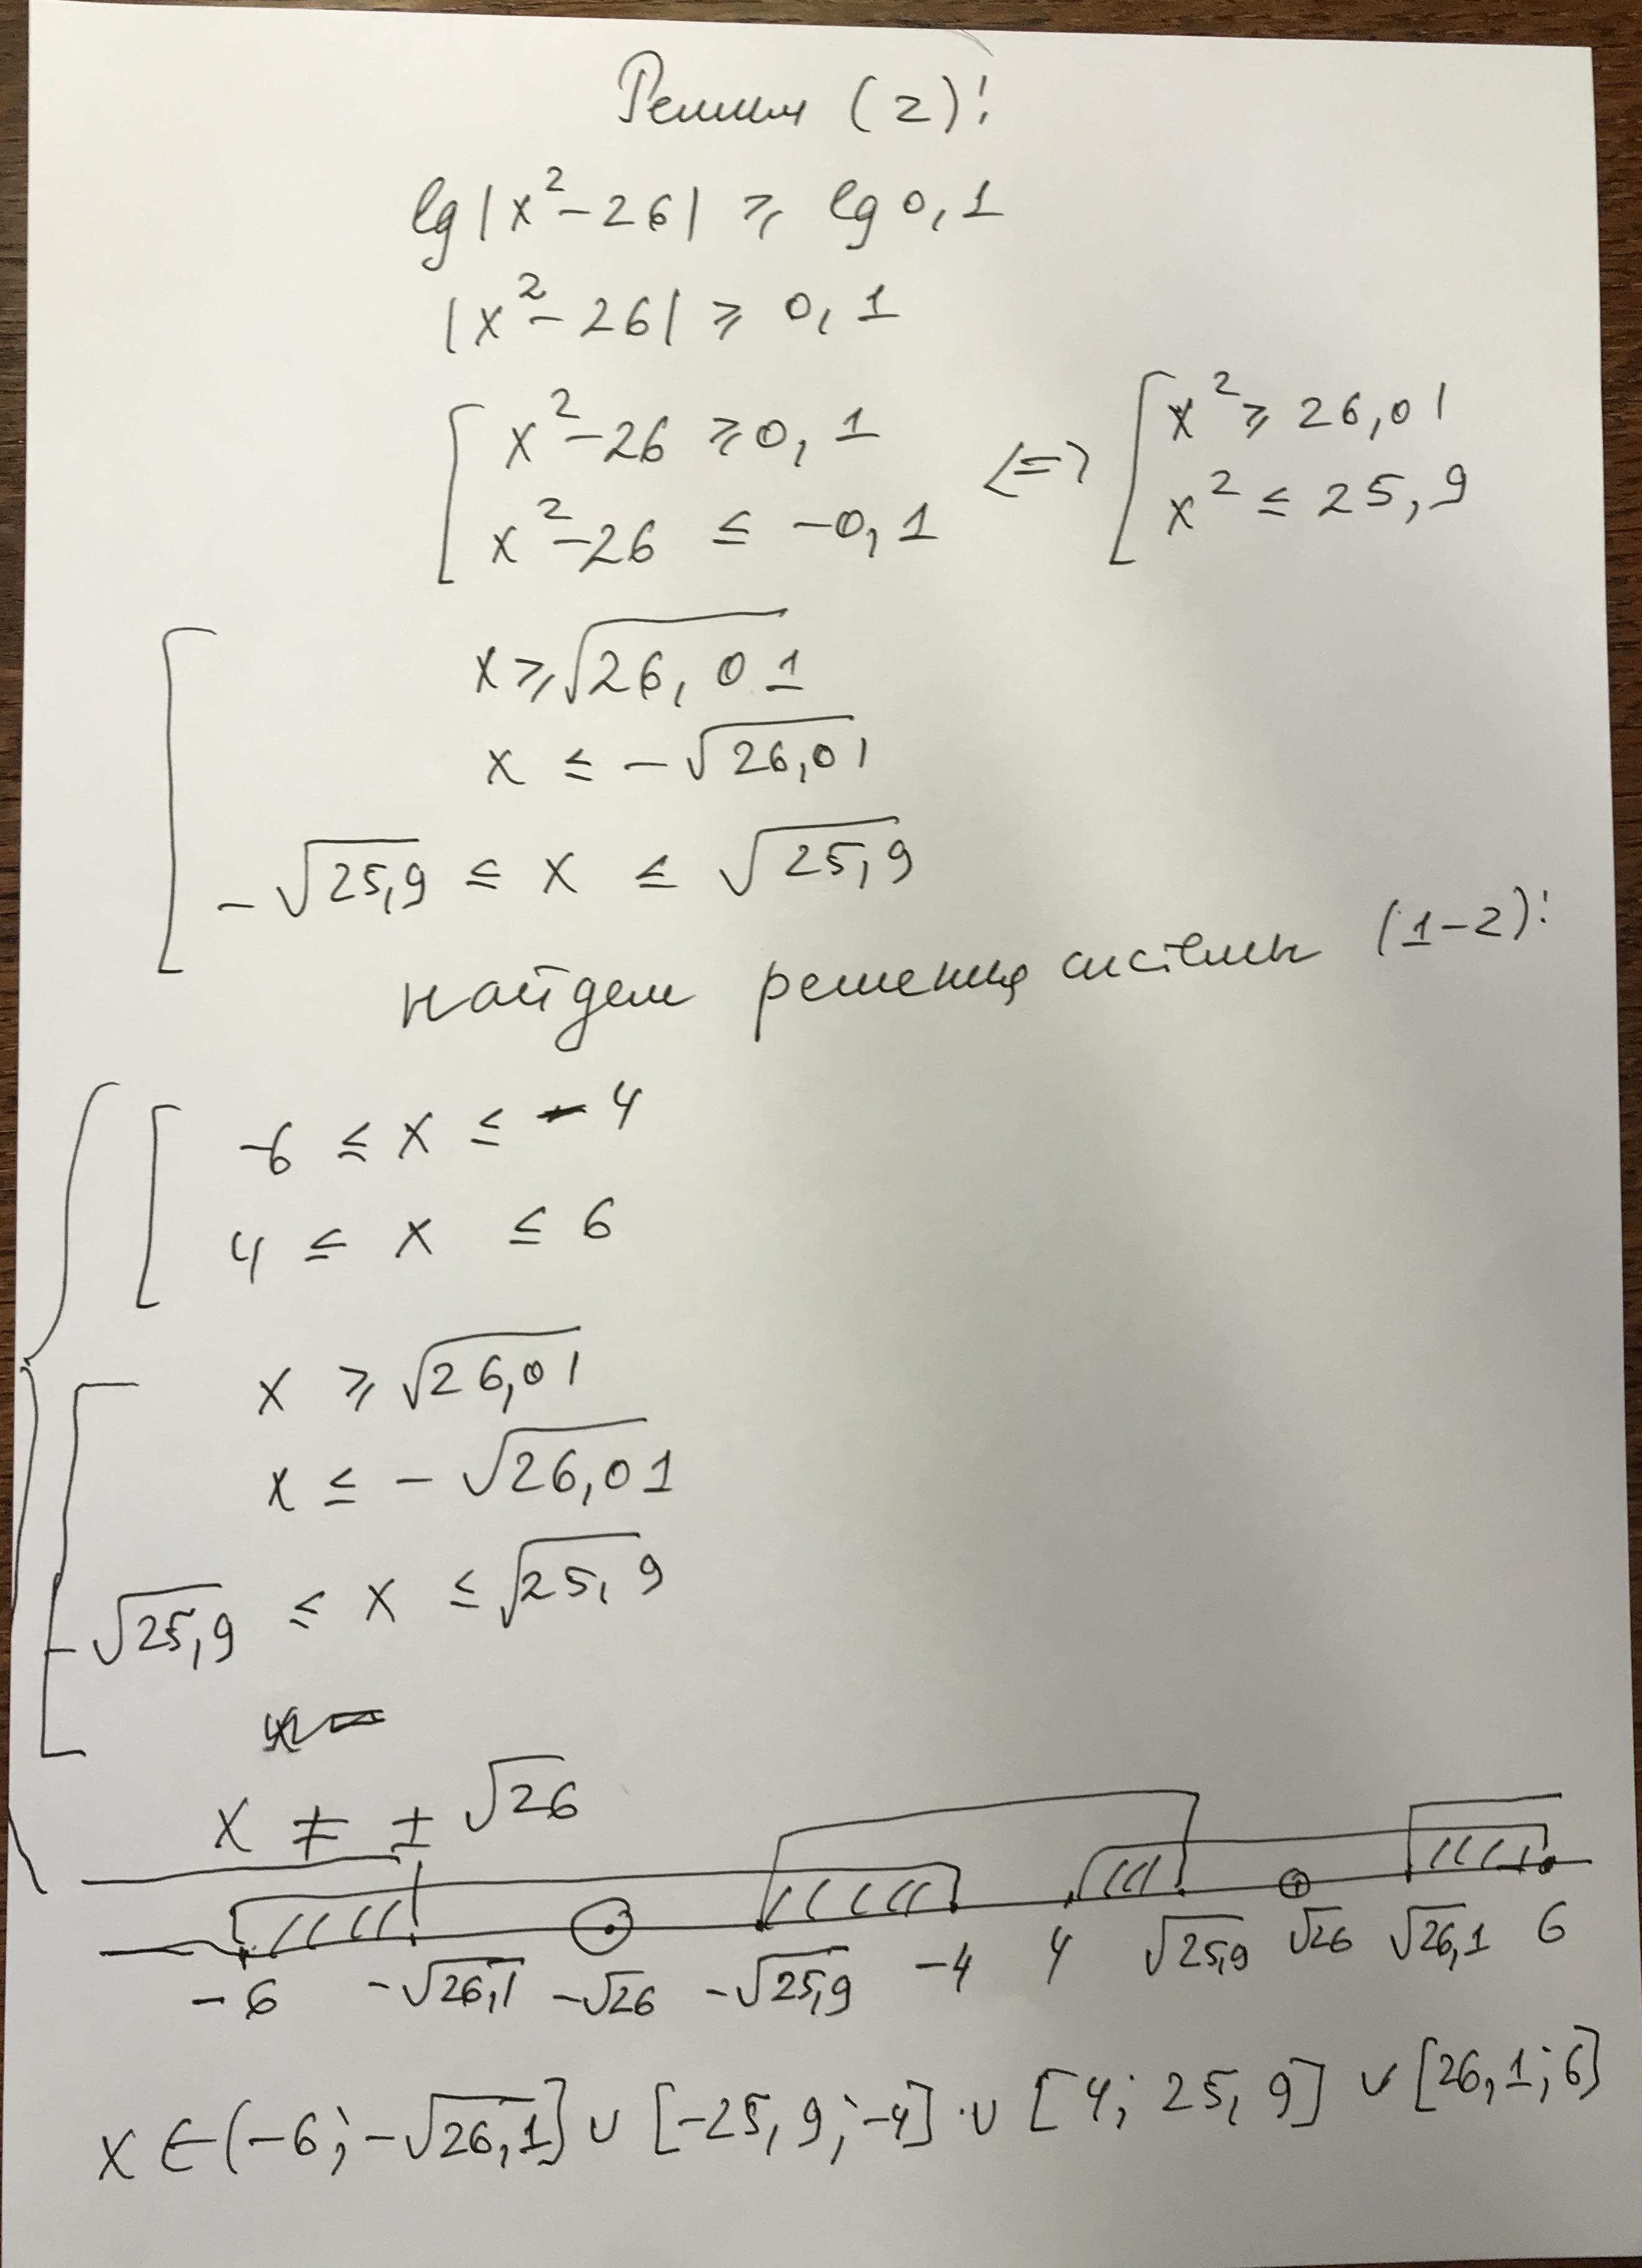 Решим (2):
lg|x²-26| ⩾ lg 0,1
|x²-26| ⩾ 0,1
[ x²-26 ⩾ 0,1
x²-26 ≤ -0,1
<=> [ x² ⩾ 26,01
x² ≤ 25,9
[ x ⩾ √26,01
x ≤ -√26,01
-√25,9 ≤ x ≤ √25,9
найдем решения системы (1-2):
{ [ -6 ≤ x ≤ -4
4 ≤ x ≤ 6
[ x ⩾ √26,01
x ≤ -√26,01
-√25,9 ≤ x ≤ √25,9
x ≠ ±√26
-6 -√26,1 -√26 -√25,9 -4 4 √25,9 √26 √26,1 6
x ∈ (-6; -√26,1] ∪ [-25,9; -4] ∪ [4; 25,9] ∪ [26,1; 6]